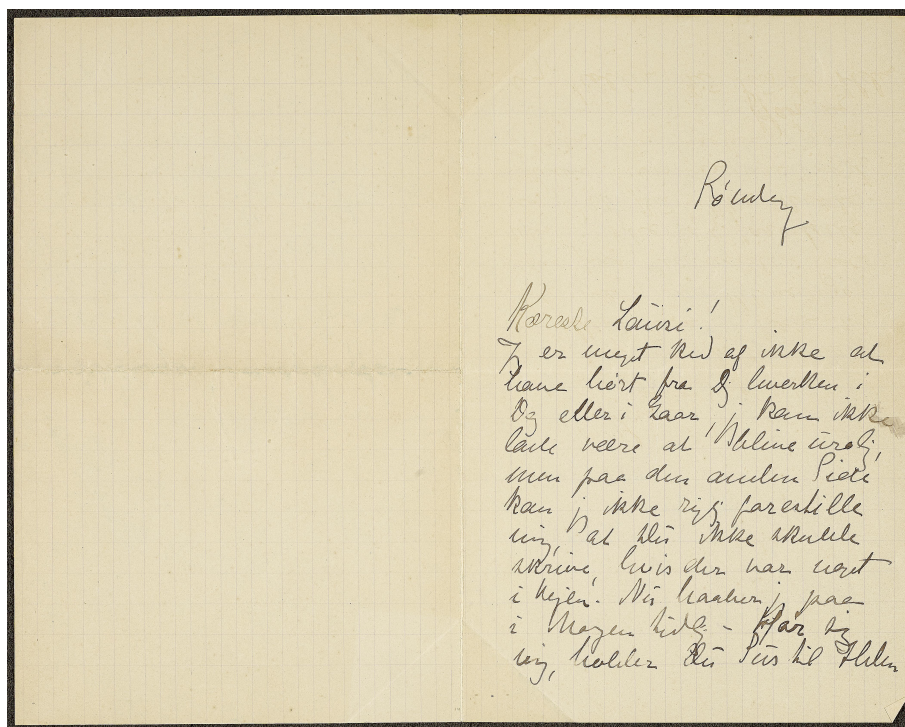 Søndag
Kæreste Lausi!
Jg er meget ked af ikke at
have hørt fra Dig hverken i
Dag eller i Gaar, jg kan ikke
lade være at blive urolig,
men paa den anden Side
kan jg ikke rigtig forestille
mig, at Du ikke skulde
skrive, hvis der var noget
i Vejen. Nu haaber jg paa
i Morgen tidlig –
mig, holder Du